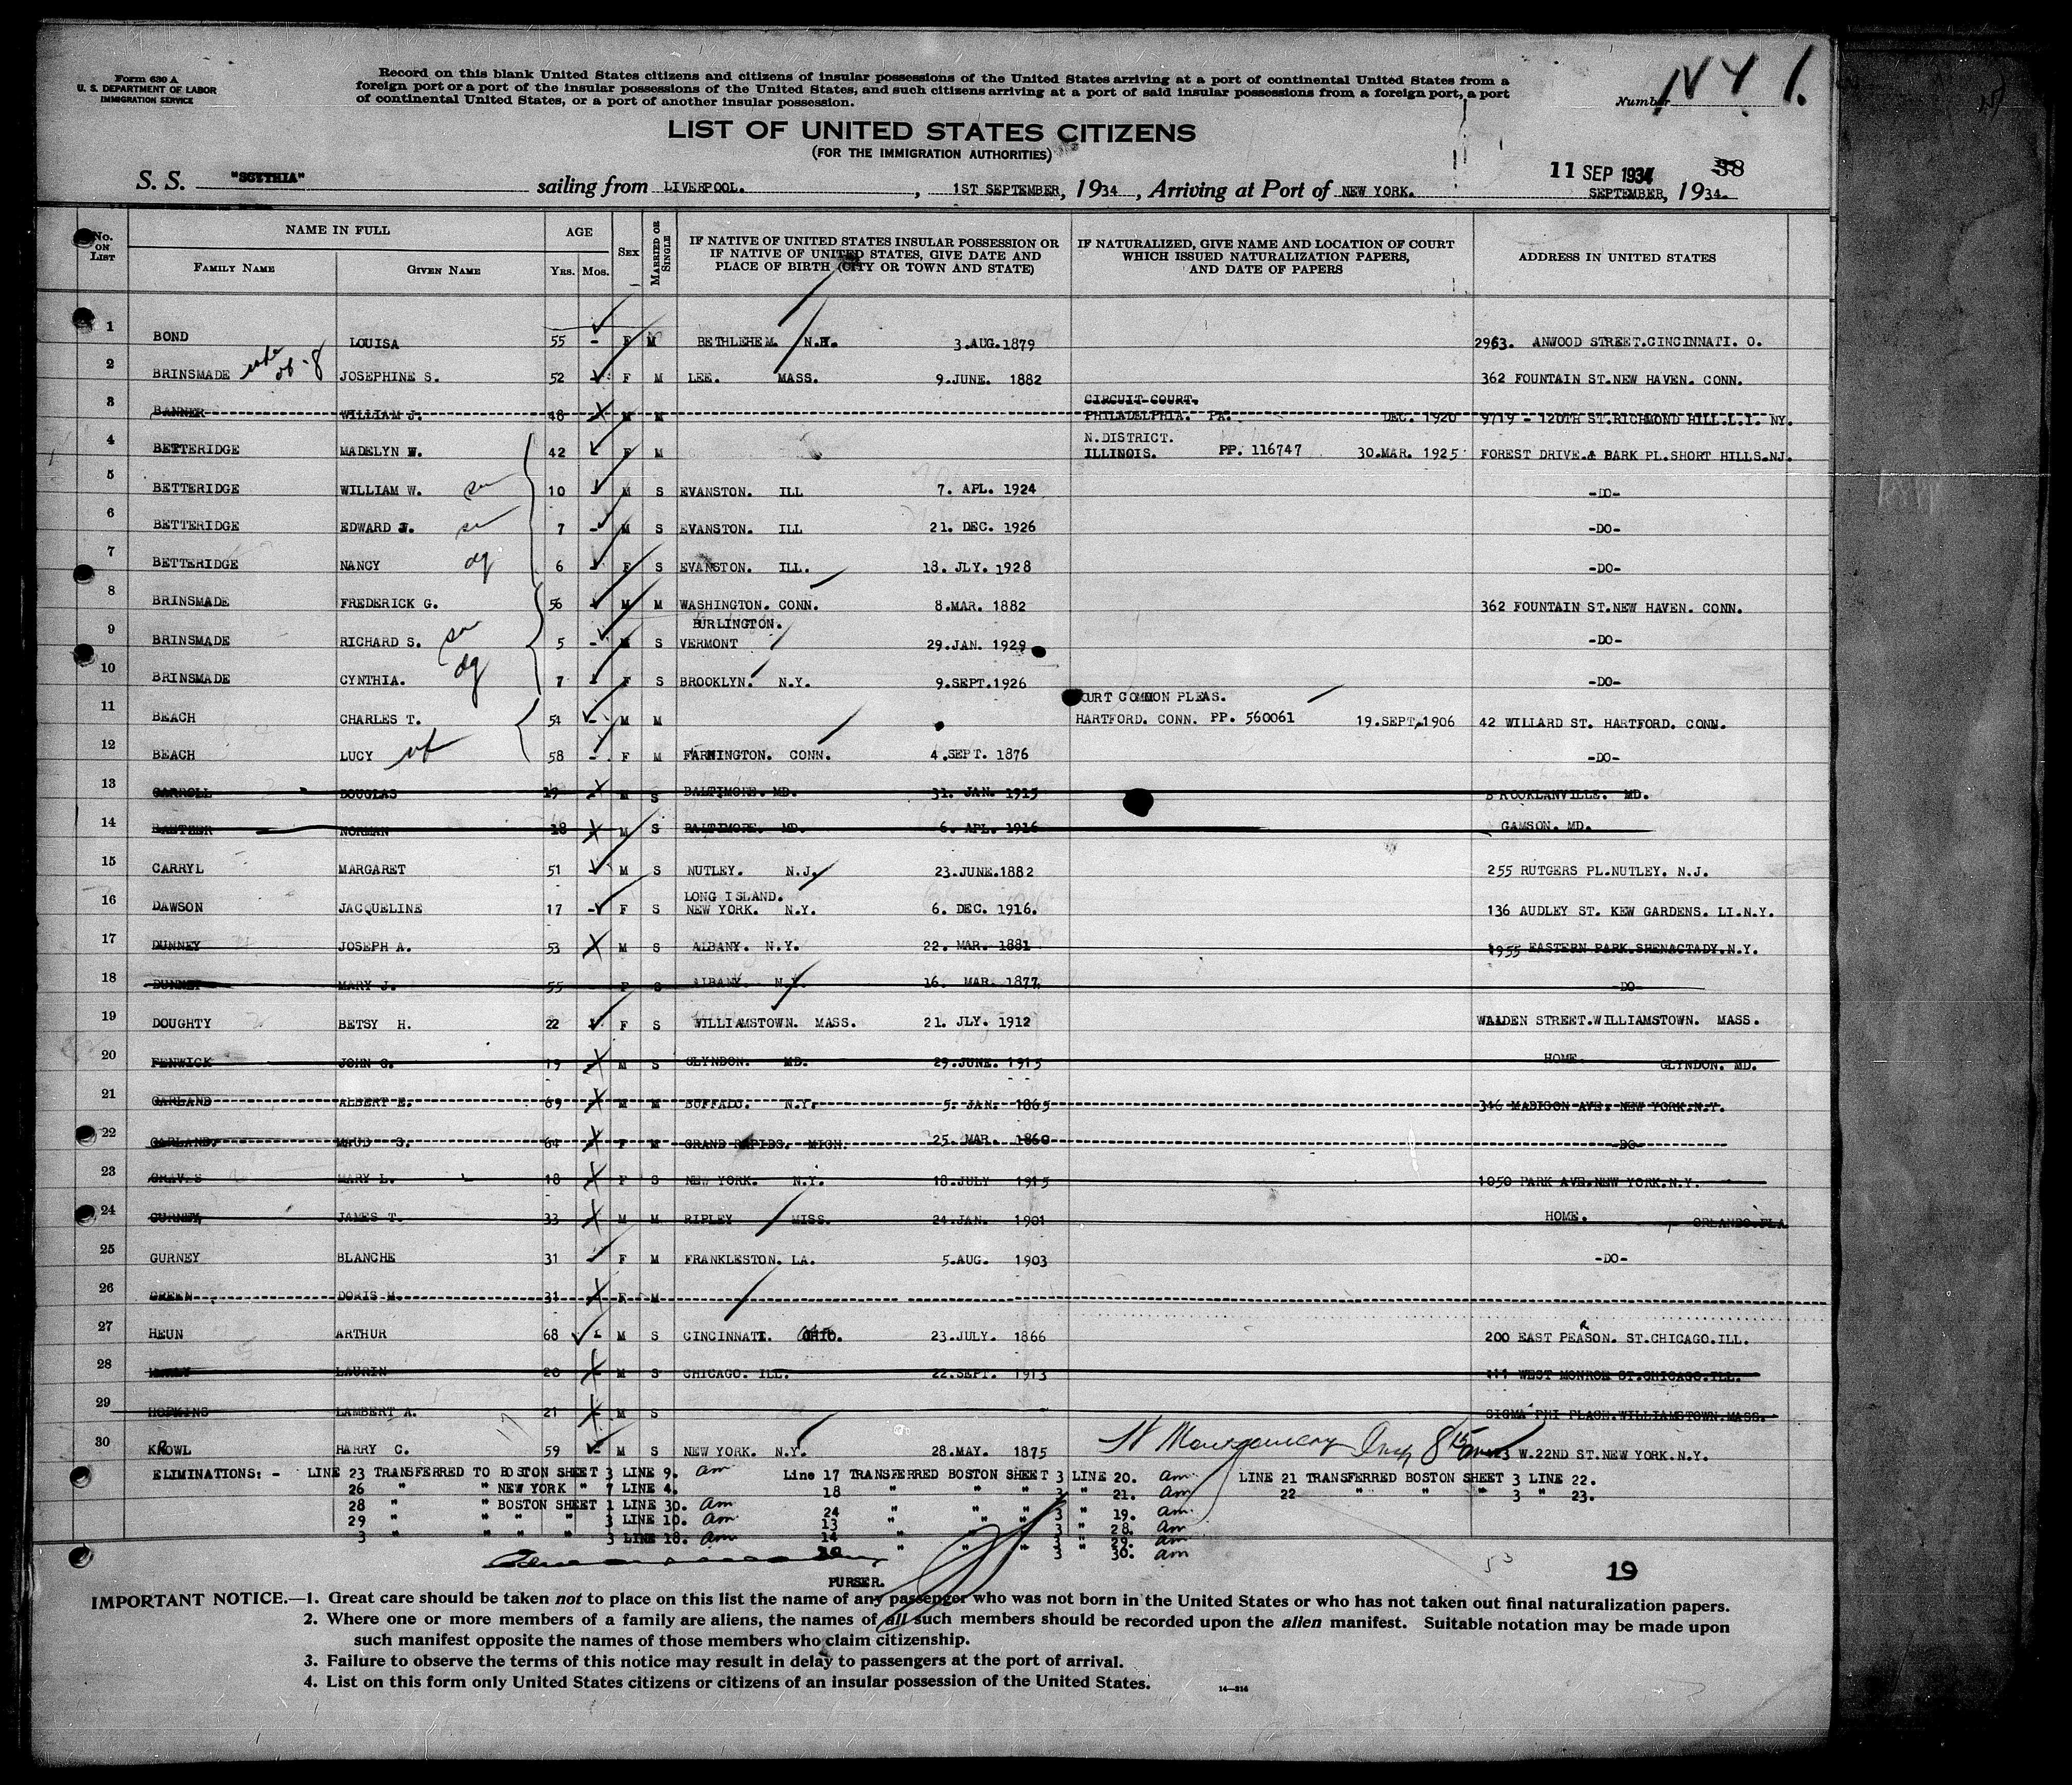 Form 630 A
U. S. DEPARTMENT OF LABOR
IMMIGRATION SERVICE
Record on this blank United States citizens and citizens of insular possessions of the United States arriving at a port of continental United States from a
foreign port or a port of the insular possessions of the United States, and such citizens arriving at a port of said insular possessions from a foreign port, a port
of continental United States, or a port of another insular possession.
Number NY 1.
LIST OF UNITED STATES CITIZENS
(FOR THE IMMIGRATION AUTHORITIES)
11 SEP 1934 38
S. S. "SCYTHIA" sailing from LIVERPOOL. , 1ST SEPTEMBER, 1934 , Arriving at Port of NEW YORK. SEPTEMBER, 1934.
No. ON LIST
NAME IN FULL
FAMILY NAME GIVEN NAME
AGE
YRS. MOS.
SEX
MARRIED OR SINGLE
IF NATIVE OF UNITED STATES INSULAR POSSESSION OR
IF NATIVE OF UNITED STATES, GIVE DATE AND
PLACE OF BIRTH (CITY OR TOWN AND STATE)
IF NATURALIZED, GIVE NAME AND LOCATION OF COURT
WHICH ISSUED NATURALIZATION PAPERS,
AND DATE OF PAPERS
ADDRESS IN UNITED STATES
1 BOND LOUISA 55 - F M BETHLEHEM. N.H. 3.AUG.1879 2963. ANWOOD STREET.CINCINNATI. O.
2 BRINSMADE wife of-8 JOSEPHINE S. 52 F M LEE. MASS. 9.JUNE. 1882 362 FOUNTAIN ST.NEW HAVEN. CONN.
CIRCUIT COURT.
3 BANNER WILLIAM J. 48 M M PHILADELPHIA. PA. DEC. 1920 9719 - 120TH ST.RICHMOND HILL.L.I. NY.
N.DISTRICT.
4 BETTERIDGE MADELYN W. 42 F M ILLINOIS. PP. 116747 30.MAR. 1925 FOREST DRIVE.& BARK PL.SHORT HILLS.NJ.
5 BETTERIDGE WILLIAM W. 10 M S EVANSTON. ILL 7. APL. 1924 -DO-
6 BETTERIDGE EDWARD J. 7 - M S EVANSTON. ILL 21. DEC. 1926 -DO-
7 BETTERIDGE NANCY dg 6 F S EVANSTON. ILL. 18. JLY. 1928 -DO-
8 BRINSMADE FREDERICK G. 56 M M WASHINGTON. CONN. 8.MAR. 1882 362 FOUNTAIN ST.NEW HAVEN. CONN.
BURLINGTON.
9 BRINSMADE RICHARD S. 5 - M S VERMONT 29.JAN. 1929 -DO-
10 BRINSMADE CYNTHIA. dg 7 F S BROOKLYN. N.Y. 9.SEPT.1926 -DO-
COURT COMMON PLEAS.
11 BEACH CHARLES T. 54 - M M HARTFORD. CONN. PP. 560061 19.SEPT.1906 42 WILLARD ST. HARTFORD. CONN.
12 BEACH LUCY wf 58 - F M FARMINGTON. CONN. 4.SEPT. 1876 -DO-
13 CARROLL DOUGLAS 19 M S BALTIMORE. MD. 31. JAN. 1915 BROOKLANVILLE. MD.
14 NORMAN 18 M S BALTIMORE. MD. 6. APL. 1916 GAMSON. MD.
15 CARRYL MARGARET 51 M S NUTLEY. N.J. 23.JUNE.1882 255 RUTGERS PL.NUTLEY. N.J.
LONG ISLAND.
16 DAWSON JACQUELINE 17 - F S NEW YORK. N.Y. 6. DEC. 1916. 136 AUDLEY ST. KEW GARDENS. LI.N.Y.
17 DUNNEY JOSEPH A. 53 M S ALBANY. N.Y. 22. MAR. 1881 1955 EASTERN PARK.SHENACTADY.N.Y.
18 DUNNEY MARY J. 55 F S ALBANY. N.Y. 16. MAR. 1877 -DO-
19 DOUGHTY BETSY H. 22 F S WILLIAMSTOWN. MASS. 21. JLY. 1912 WALDEN STREET.WILLIAMSTOWN. MASS.
20 FENWICK JOHN G. 19 M S GLYNDON. MD. 29.JUNE. 1915 HOME. GLYNDON. MD.
21 GARLAND ALBERT E. 69 M M BUFFALO. N.Y. 5. JAN. 1865 346 MADISON AVE. NEW YORK.N.Y.
22 GARLAND. MAUD S. 64 F M GRAND RAPIDS. MICH. 25. MAR. 1860 -DO-
23 GRAVES MARY L. 18 F S NEW YORK. N.Y. 18.JULY 1915 1050 PARK AVE.NEW YORK.N.Y.
24 GURNEY JAMES T. 33 M M RIPLEY MISS. 24.JAN. 1901 HOME. ORLANDO.FLA
25 GURNEY BLANCHE 31 F M FRANKLESTON. LA. 5.AUG. 1903 -DO-
26 GREEN DORIS M. 31 F M
27 HEUN ARTHUR 68 - M S CINCINNATI. OHIO. 23.JULY. 1866 200 EAST PEARSON. ST.CHICAGO.ILL.
28 LAURIN 20 M S CHICAGO. ILL. 22.SEPT. 1913 111 WEST MONROE ST.CHICAGO.ILL.
29 HOPKINS LAMBERT A. 21 M S SIGMA PHI PLACE.WILLIAMSTOWN.MASS.
30 KROWL HARRY C. 59 M S NEW YORK. N.Y. 28.MAY. 1875 W.22ND ST.NEW YORK.N.Y.
ELIMINATIONS: - LINE 23 TRANSFERRED TO BOSTON SHEET 3 LINE 9. am Line 17 TRANSFERRED BOSTON SHEET 3 LINE 20. am LINE 21 TRANSFERRED BOSTON SHEET 3 LINE 22.
26 " " NEW YORK " 7 LINE 4. 18 " " " 3 " 21. am 22 " " " 3 " 23.
28 " " BOSTON SHEET 1 LINE 30. am 24 " " " 3 " 19. am
29 " " " " 3 LINE 10. am 13 " " " 3 " 28. am
3 " " " " 3 LINE 18. am 14 " " " 3 " 29. am
" " " 3 30. am
PURSER.
53
19
IMPORTANT NOTICE.—1. Great care should be taken not to place on this list the name of any passenger who was not born in the United States or who has not taken out final naturalization papers.
2. Where one or more members of a family are aliens, the names of all such members should be recorded upon the alien manifest. Suitable notation may be made upon
such manifest opposite the names of those members who claim citizenship.
3. Failure to observe the terms of this notice may result in delay to passengers at the port of arrival.
4. List on this form only United States citizens or citizens of an insular possession of the United States.